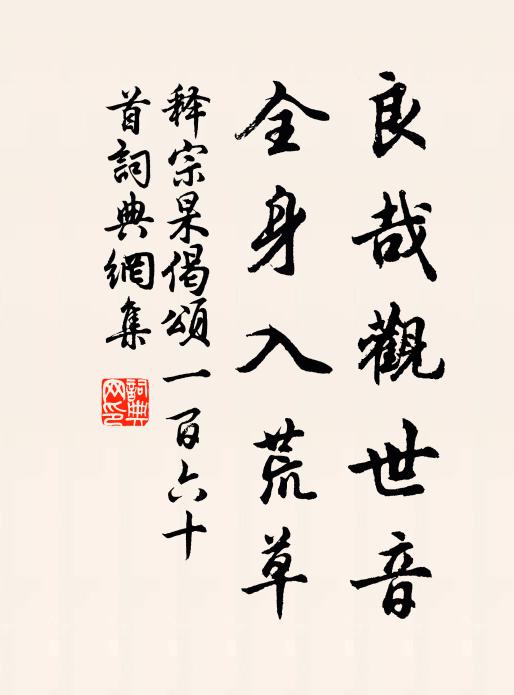 良哉觀世音
全身入荒草
释宗杲偈頌一百六十
首詞典網集
詞典
网印